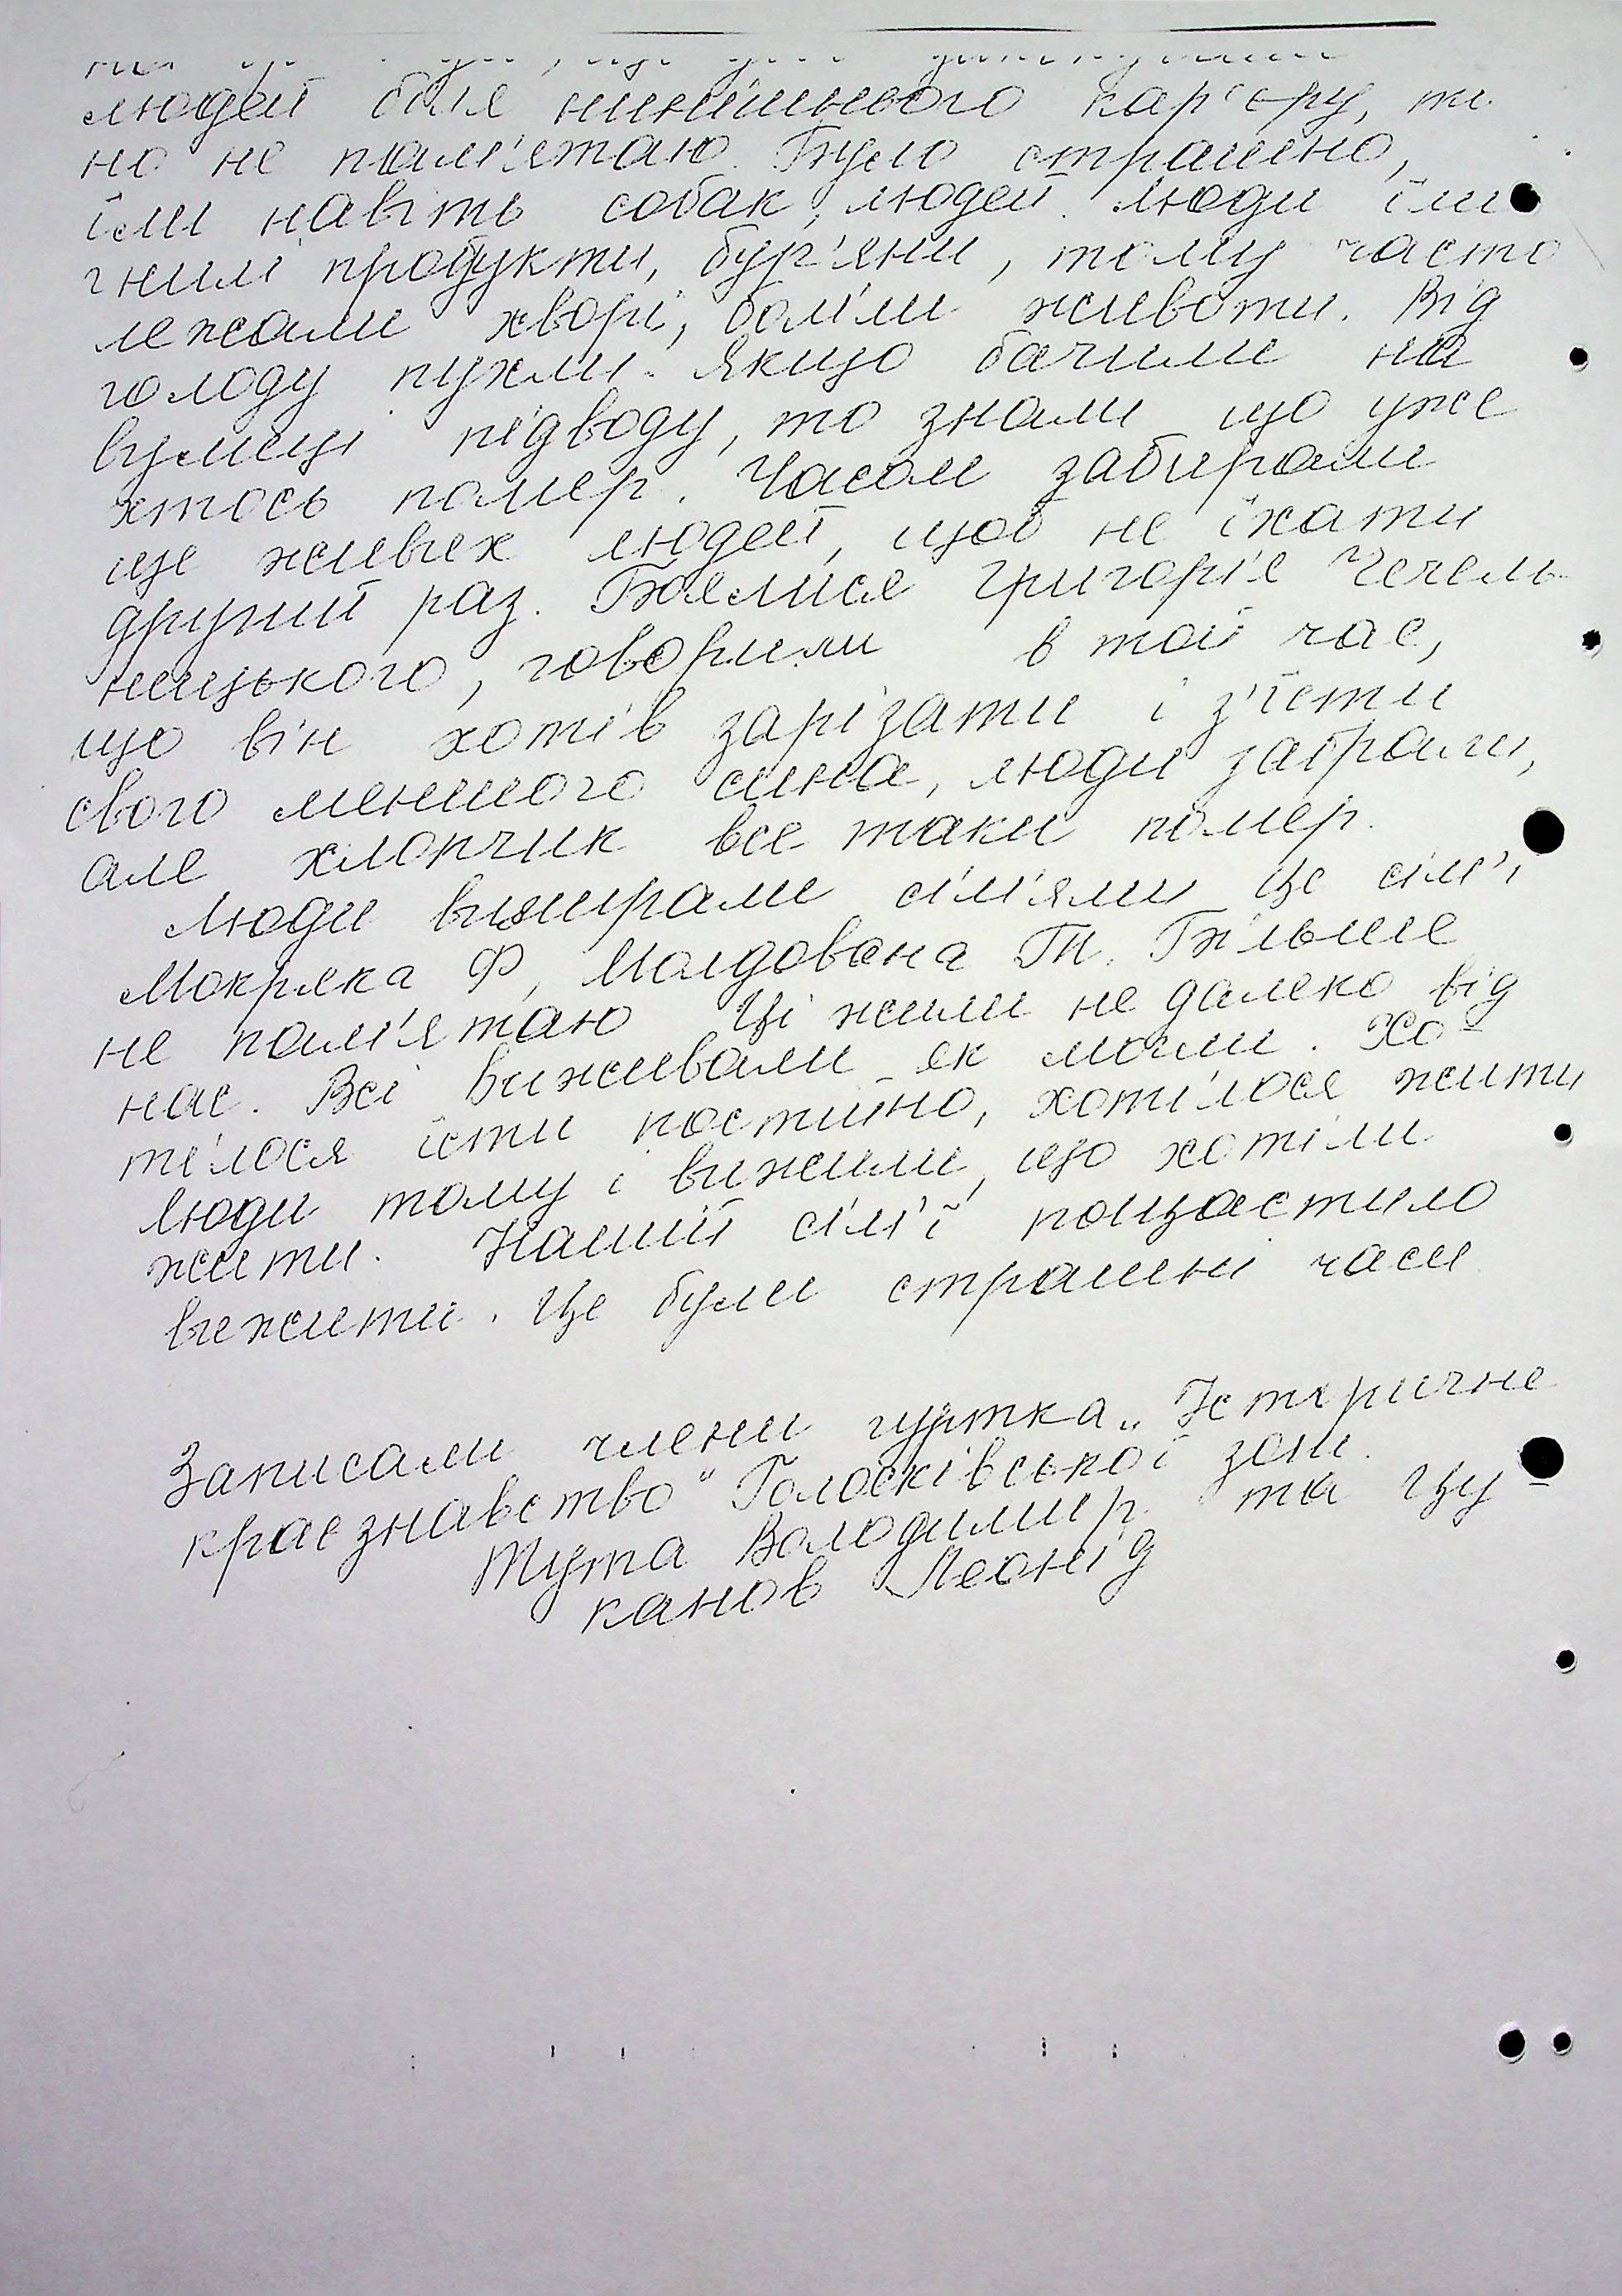 людей біля нинішнього кар'єру, ти
но не пам'ятаю. Було страшно,
їли навіть собак, людей. Люди їли
гнилі продукти, бур'яни, тому часто
лежали хворі, боліли животи. Від
голоду пухли. Якщо бачили на
вулиці підводу, то знали що уже
хтось помер. Часом забирали
ще живих людей, щоб не їхати
другий раз. Боялися Григорія Чечель-
ницького, говорили в той час,
що він хотів зарізати і з'їсти
свого меншого сина, люди забрали,
але хлопчик все таки помер.
Люди вимирали сім'ями Це сім'ї
Мокряка Ф, Молдована Т. Більше
не пам'ятаю Ці жили не далеко від
нас. Всі виживали як могли. Хо-
тілося їсти постійно, хотілося жити
Люди тому і вижили, що хотіли
жити. Нашій сім'ї пощастило
вижити. Це були страшні часи
Записали члени гуртка „Історичне
краєзнавство" Голосківської зош.
Тута Володимир та Цу-
канов Леонід